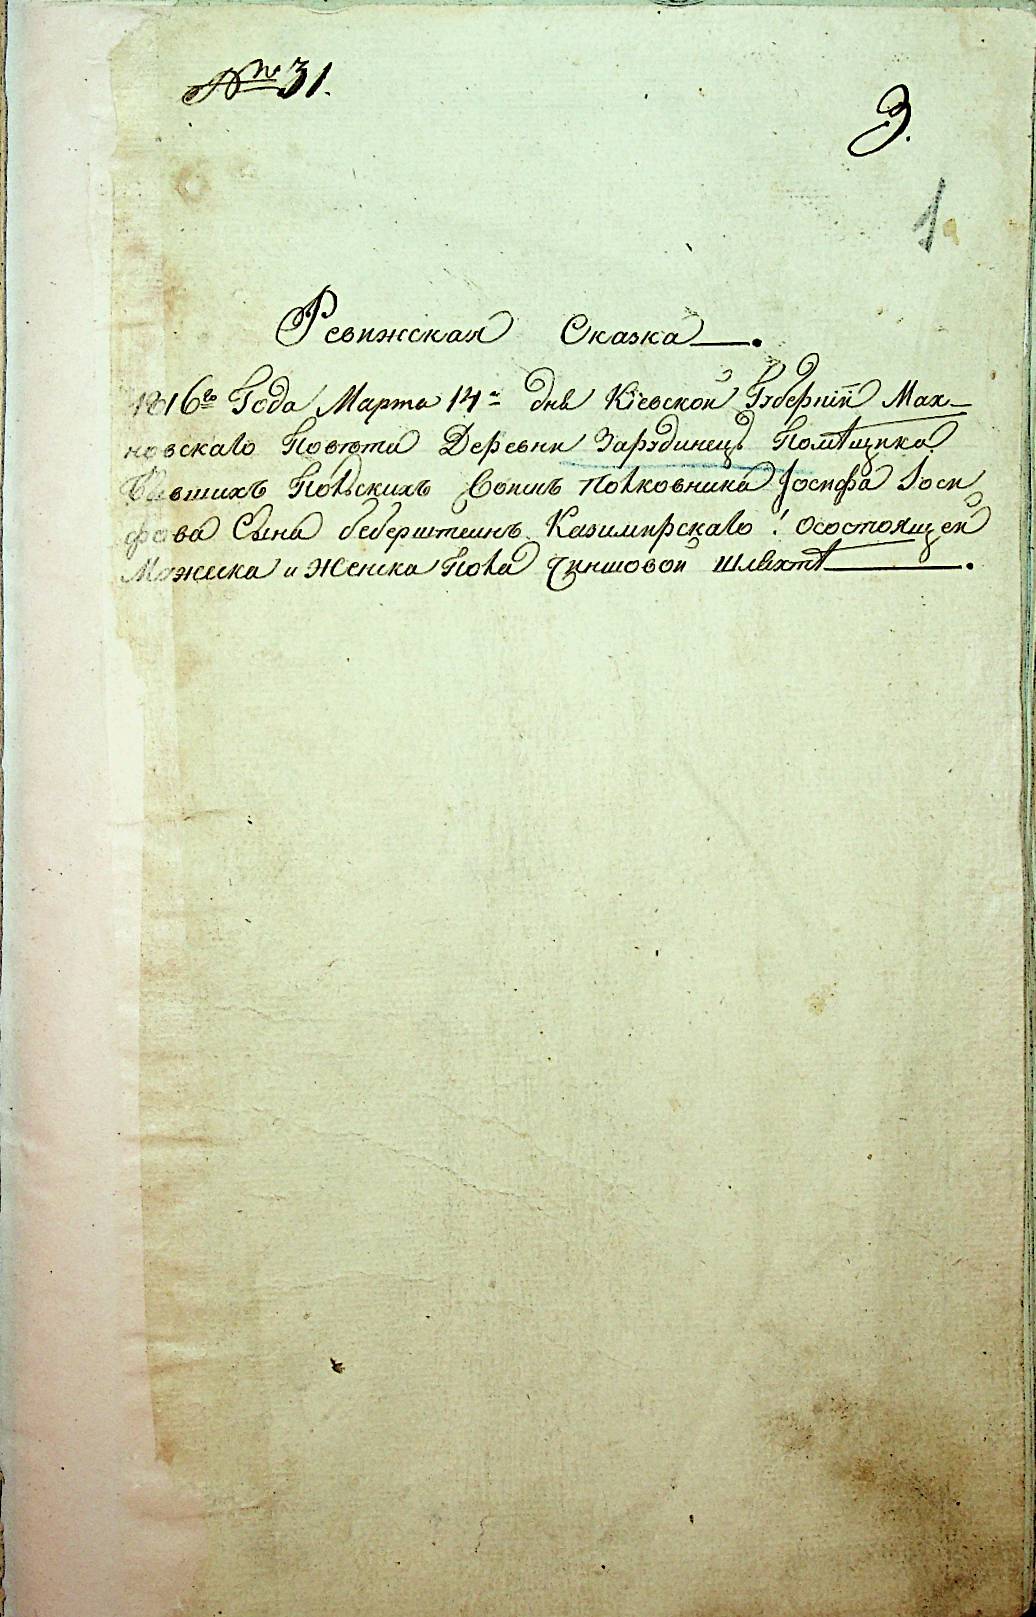 № 31.
3.
1
Ревижская Сказка.
1816го Года Марта 14 дня Кіевской Губерніи Мах-
новскаго Повѣта Деревни Зарудинецъ Помѣщика
бывшихъ Польскихъ Воиiнъ Полковника Іосифа Іоси
фова Сына беберштеинъ Казимирскаго! Осостоящей
Мужеска и Женска Пола Чиншовой шляхтѣ.